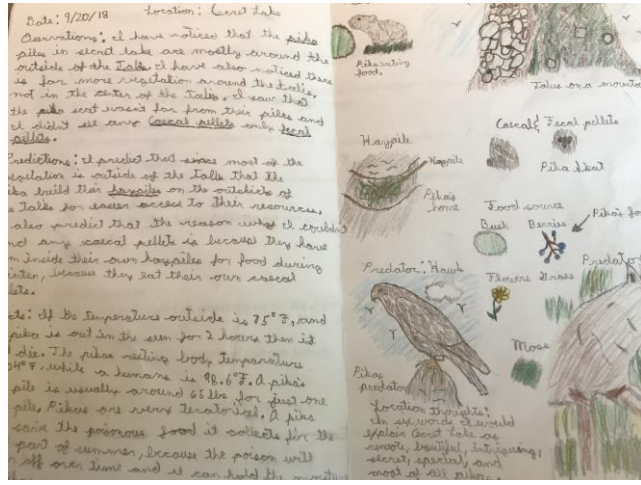 Date: 9/20/18
Location: Secret Lake
Observations: I have noticed that the pika
piles in secret lake are mostly around the
outside of the Talis. I have also noticed there
is far more vegetation around the talis,
not in the center of the talis. I saw that
the pika scat wasn't far from their piles and
I didn't see any Caecal pellets only fecal
pellets.
Predictions: I predict that since most of the
vegetation is outside of the Talis that the
build their haypiles on the outskirts of
Talis for easier access to their resources.
also predict that the reason why I couldn't
any caecal pellets is because they have
inside their own haypiles for food during
because they eat their own caecal
If the temperature outside is 75°F, and
pika is out in the sun for 2 hours then it
die. The pikas resting body temperature
while a humans is 98.6°F. A pika's
pile is usually around 65 lbs for just one
pile. Pikas are very
the poisonous food it collects for the
part of summer, because the poison will
off over time and it can hold the
Pika eating
food.
Talus on a
Caecal & Fecal pellets
Pika Scat
Haypile
Haypile
Pika's
home
Food source
Bush
Berries
Pika's
Predator: Hawk
Flowers
Grass
Moss
Pikas
predator
Location thoughts:
In six words I would
explain Secret Lake as
remote, intriguing,
secret, special, and
most of all pikas.